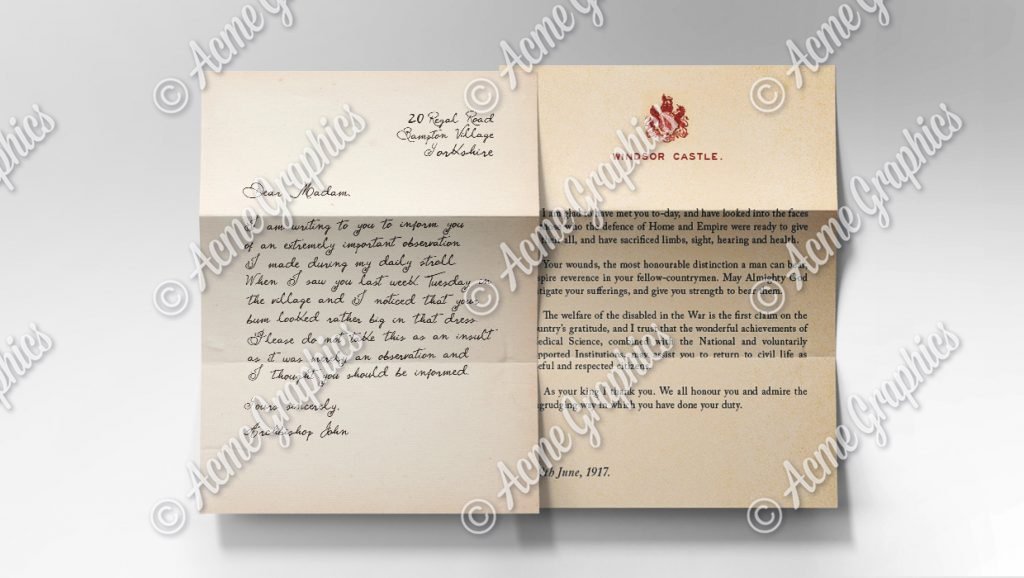 © Acme Graphics
20 Regal Road
Rampton Village
Yorkshire
Dear Madam,
I am writing to you to inform you
of an extremely important observation
I made during my daily stroll.
When I saw you last week Tuesday in
the village and I noticed that your
bum looked rather big in that dress.
Please do not take this as an insult
as it was merely an observation and
I thought you should be informed.
Yours sincerely,
Archbishop John
WINDSOR CASTLE.
I am glad to have met you to-day, and have looked into the faces
who the defence of Home and Empire were ready to give
all, and have sacrificed limbs, sight, hearing and health.
Your wounds, the most honourable distinction a man can bear,
spire reverence in your fellow-countrymen. May Almighty God
tigate your sufferings, and give you strength to bear them.
The welfare of the disabled in the War is the first claim on the
untry's gratitude, and I trust that the wonderful achievements of
edical Science, combined with the National and voluntarily
pported Institutions, may assist you to return to civil life as
eful and respected citizens.
As your king I thank you. We all honour you and admire the
grudging way in which you have done your duty.
th June, 1917.